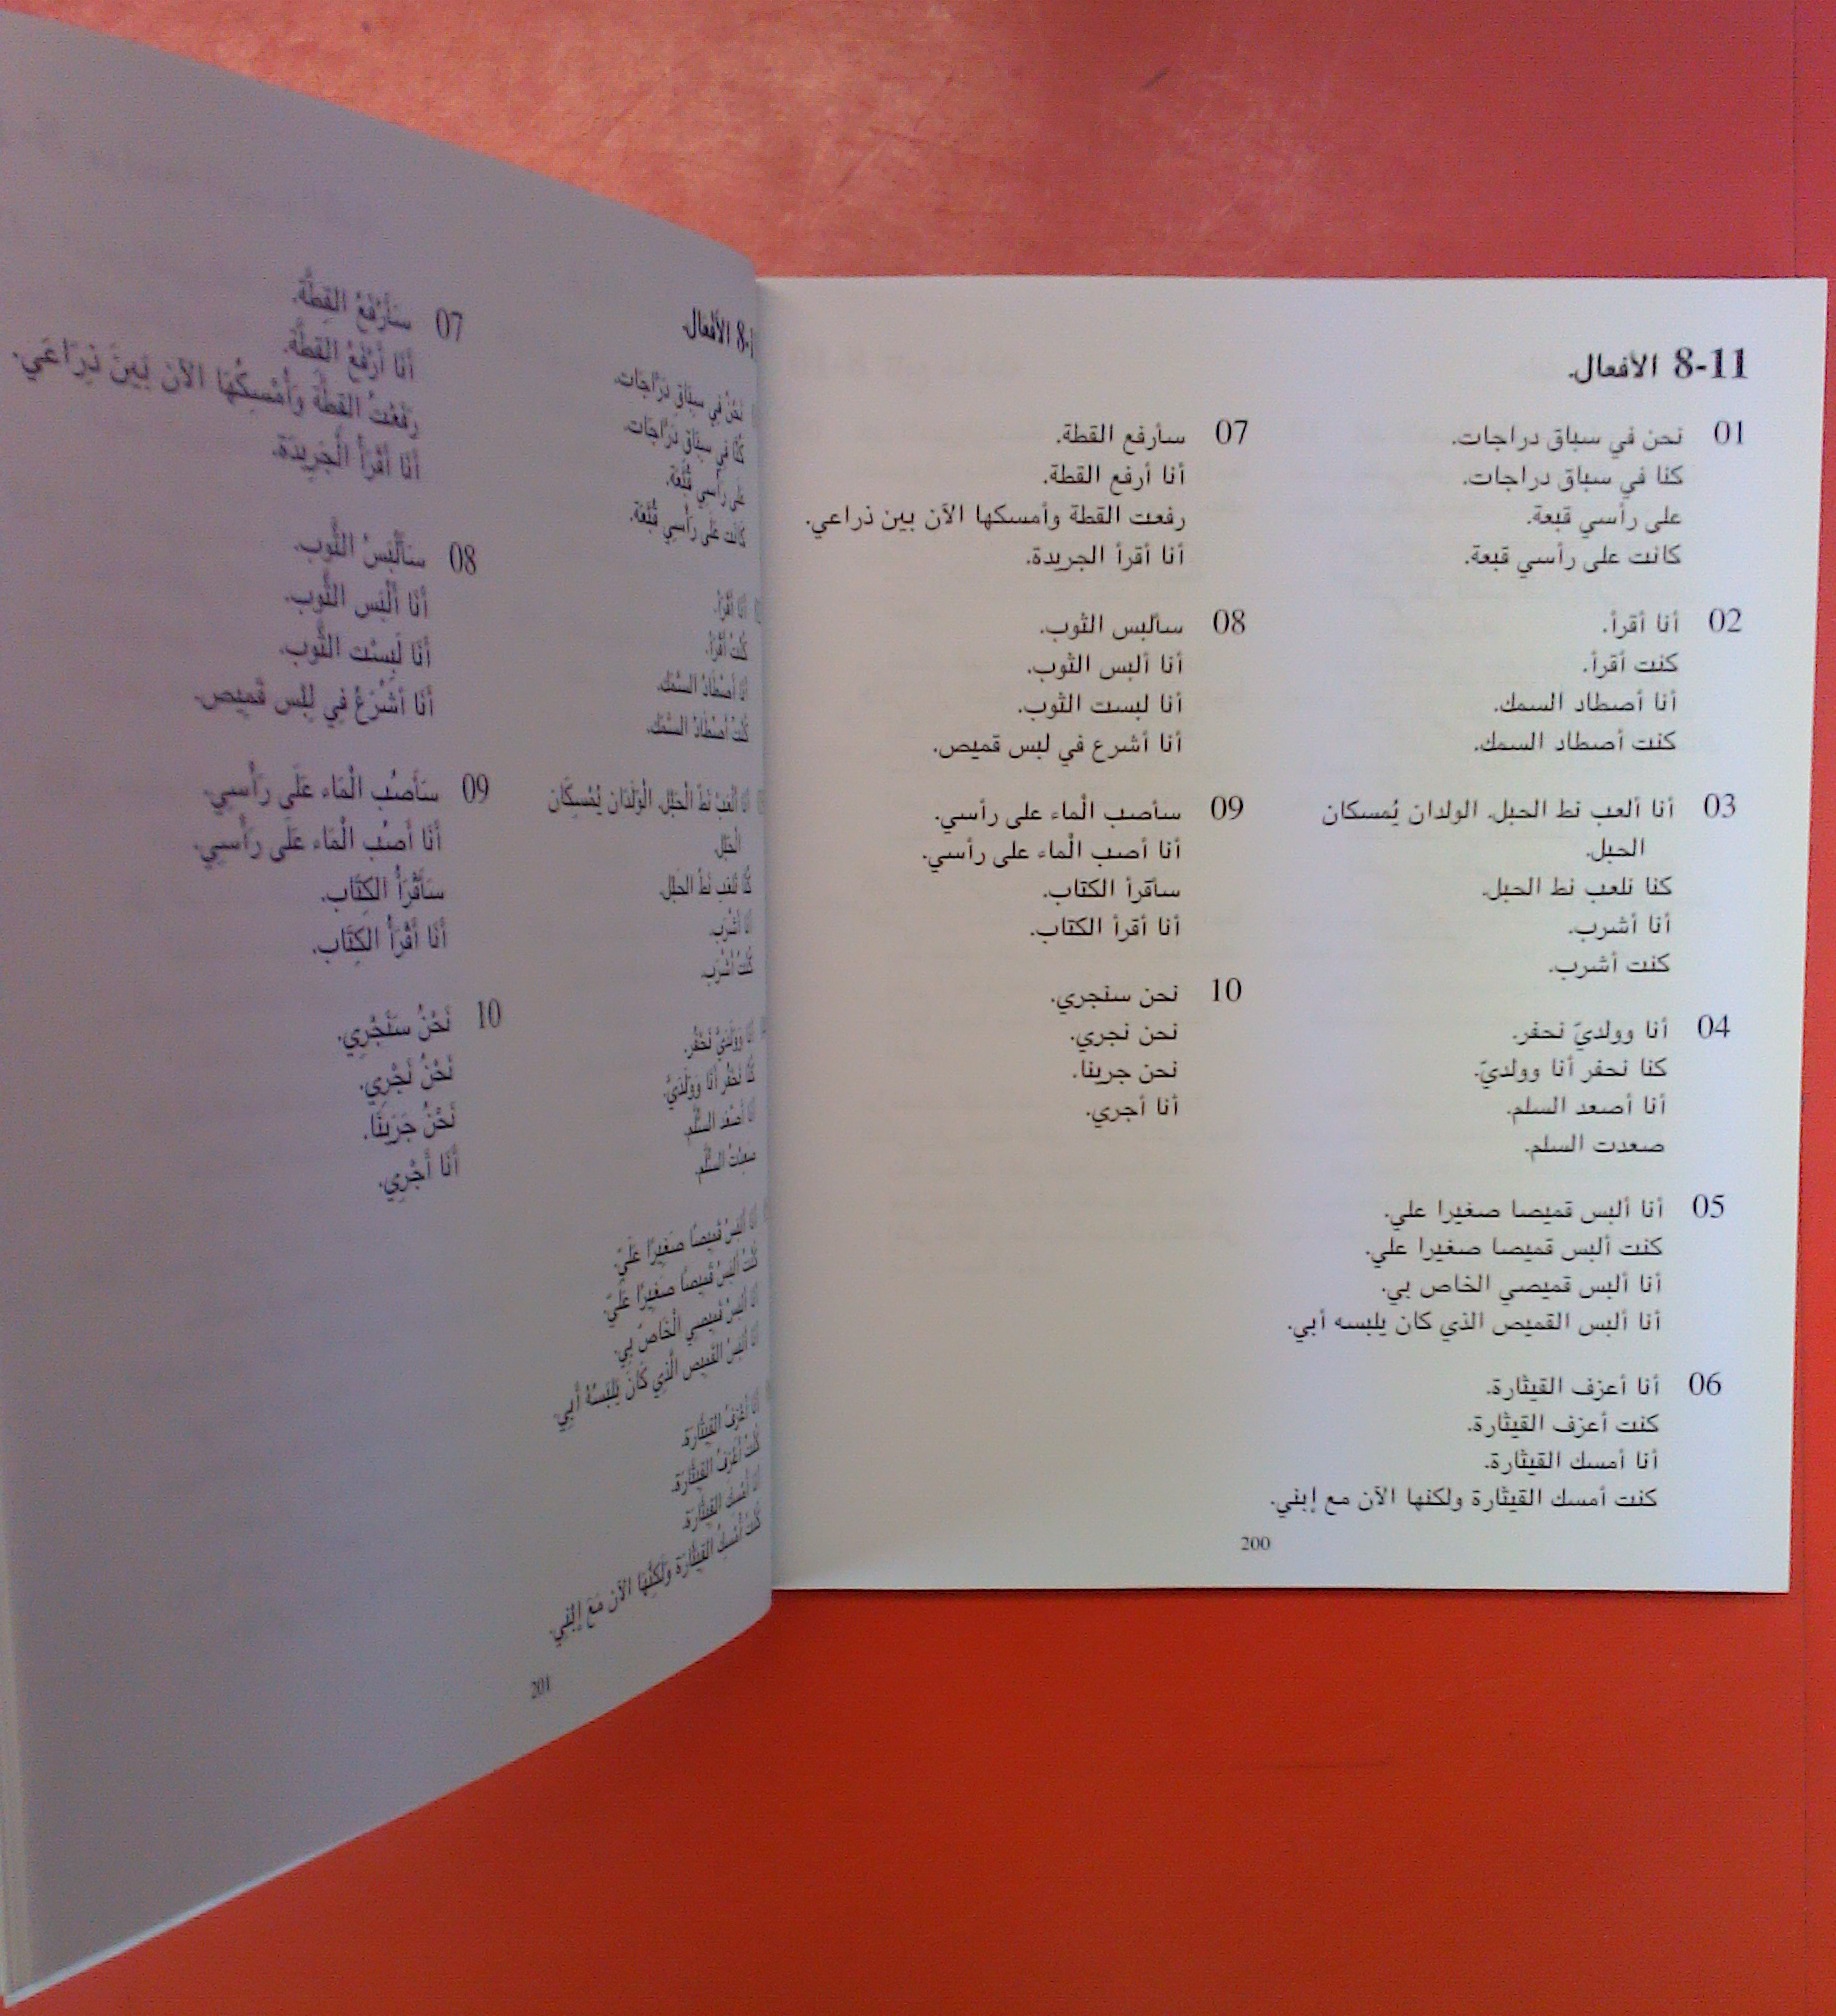 8-11 الأفعال.
01 نحن في سباق دراجات.
كنا في سباق دراجات.
على رأسي قبعة.
كانت على رأسي قبعة.
02 أنا أقرأ.
كنت أقرأ.
أنا أصطاد السمك.
كنت أصطاد السمك.
03 أنا ألعب نط الحبل. الولدان يُمسكان
الحبل.
كنا نلعب نط الحبل.
أنا أشرب.
كنت أشرب.
04 أنا وولديّ نحفر.
كنا نحفر أنا وولديّ.
أنا أصعد السلم.
صعدت السلم.
05 أنا ألبس قميصا صغيرا علي.
كنت ألبس قميصا صغيرا علي.
أنا ألبس قميصي الخاص بي.
أنا ألبس القميص الذي كان يلبسه أبي.
06 أنا أعزف القيثارة.
كنت أعزف القيثارة.
أنا أمسك القيثارة.
كنت أمسك القيثارة ولكنها الآن مع إبني.
07 سأرفع القطة.
أنا أرفع القطة.
رفعت القطة وأمسكها الآن بين ذراعي.
أنا أقرأ الجريدة.
08 سألبس الثوب.
أنا ألبس الثوب.
أنا لبست الثوب.
أنا أشرع في لبس قميص.
09 سأصب الْماء على رأسي.
أنا أصب الْماء على رأسي.
سأقرأ الكتاب.
أنا أقرأ الكتاب.
10 نحن سنجري.
نحن نجري.
نحن جرينا.
أنا أجري.
200
الأفعال.
نَحْنُ فِي سِبَاقِ دَرَّاجَات.
كُنَّا فِي سِبَاقِ دَرَّاجَات.
عَلى رَأْسِي قُبَّعَة.
كَانَت عَلى رَأْسِي قُبَّعَة.
أَنَا أَقْرَأ.
كُنْتُ أَقْرَأ.
أَنَا أَصْطَادُ السَّمَك.
كُنْتُ أَصْطَادُ السَّمَك.
أَنَا أَلْعَبُ نَطَّ الْحَبْل. الْوَلَدَان يُمْسِكَان
الْحَبْل.
كُنَّا نَلْعَب نَطَّ الحَبْل.
أَنَا أَشْرَب.
كُنْتُ أَشْرَب.
أَنَا وَوَلَدَيَّ نَحْفُر.
كُنَّا نَحْفُر أَنَا وَوَلَدَيَّ.
أَنَا أَصْعَد السُّلَّم.
صَعِدْتُ السُّلَّم.
أَنَا أَلْبَسُ قَمِيصًا صَغِيرًا عَلَيّ.
كُنْتُ أَلْبَسُ قَمِيصًا صَغِيرًا عَلَيّ.
أَنَا أَلْبَسُ قَمِيصِي الْخَاصّ بِي.
أَنَا أَلْبَسُ القَمِيص الَّذِي كَانَ يَلْبَسُهُ أَبِي.
أَنَا أَعْزفُ القِيثَارَة.
كُنْتُ أَعْزفُ القِيثَارَة.
أَنَا أُمْسِكُ القِيثَارَة.
كُنْتُ أُمْسِكُ القِيثَارَة وَلَكِنَّهَا الآن مَعَ إِبْنِي.
07 سَأَرْفَعُ القِطَّة.
أَنَا أَرْفَعُ القِطَّة.
رَفَعْتُ القِطَّة وَأُمْسِكُهَا الآن بَينَ ذِرَاعَي.
أَنَا أَقْرَأُ الْجَرِيدَة.
08 سَأَلْبَسُ الثَّوب.
أَنَا أَلْبَس الثَّوب.
أَنَا لَبِسْت الثَّوب.
أَنَا أَشْرَعُ فِي لِبْس قَمِيص.
09 سَأَصُب الْمَاء عَلَى رَأْسِي.
أَنَا أَصُب الْمَاء عَلَى رَأْسِي.
سَأَقْرَأُ الكِتَاب.
أَنَا أَقْرَأُ الكِتَاب.
10 نَحْنُ سَنَجْرِي.
نَحْنُ نَجْرِي.
نَحْنُ جَرَينَا.
أَنَا أَجْرِي.
201